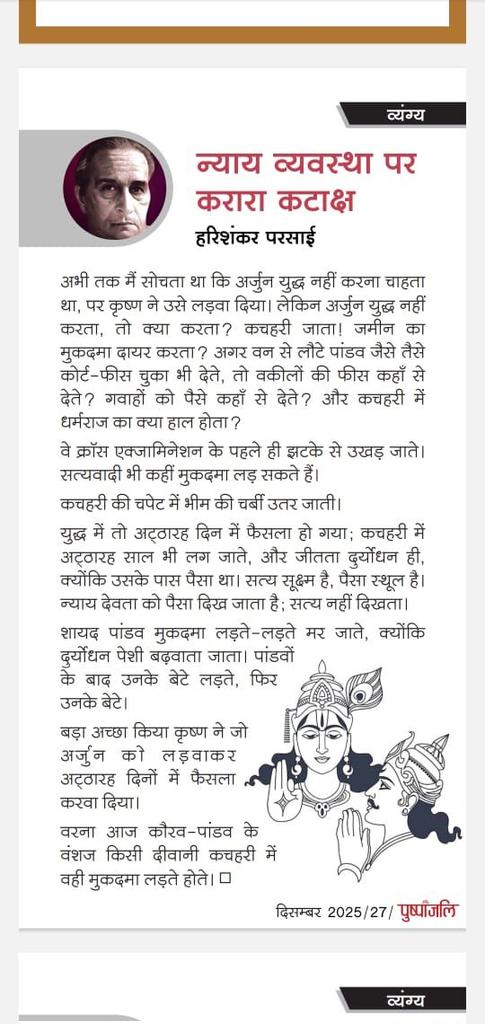 व्यंग्य
न्याय व्यवस्था पर
करारा कटाक्ष
हरिशंकर परसाई
अभी तक मैं सोचता था कि अर्जुन युद्ध नहीं करना चाहता
था, पर कृष्ण ने उसे लड़वा दिया। लेकिन अर्जुन युद्ध नहीं
करता, तो क्या करता? कचहरी जाता! जमीन का
मुकदमा दायर करता? अगर वन से लौटे पांडव जैसे तैसे
कोर्ट-फीस चुका भी देते, तो वकीलों की फीस कहाँ से
देते? गवाहों को पैसे कहाँ से देते? और कचहरी में
धर्मराज का क्या हाल होता?
वे क्रॉस एक्जामिनेशन के पहले ही झटके से उखड़ जाते।
सत्यवादी भी कहीं मुकदमा लड़ सकते हैं।
कचहरी की चपेट में भीम की चर्बी उतर जाती।
युद्ध में तो अट्ठारह दिन में फैसला हो गया; कचहरी में
अट्ठारह साल भी लग जाते, और जीतता दुर्योधन ही,
क्योंकि उसके पास पैसा था। सत्य सूक्ष्म है, पैसा स्थूल है।
न्याय देवता को पैसा दिख जाता है; सत्य नहीं दिखता।
शायद पांडव मुकदमा लड़ते-लड़ते मर जाते, क्योंकि
दुर्योधन पेशी बढ़वाता जाता। पांडवों
के बाद उनके बेटे लड़ते, फिर
उनके बेटे।
बड़ा अच्छा किया कृष्ण ने जो
अर्जुन को लड़वाकर
अट्ठारह दिनों में फैसला
करवा दिया।
वरना आज कौरव-पांडव के
वंशज किसी दीवानी कचहरी में
वही मुकदमा लड़ते होते। □
दिसम्बर 2025/27/ पुष्पांजलि
व्यंग्य